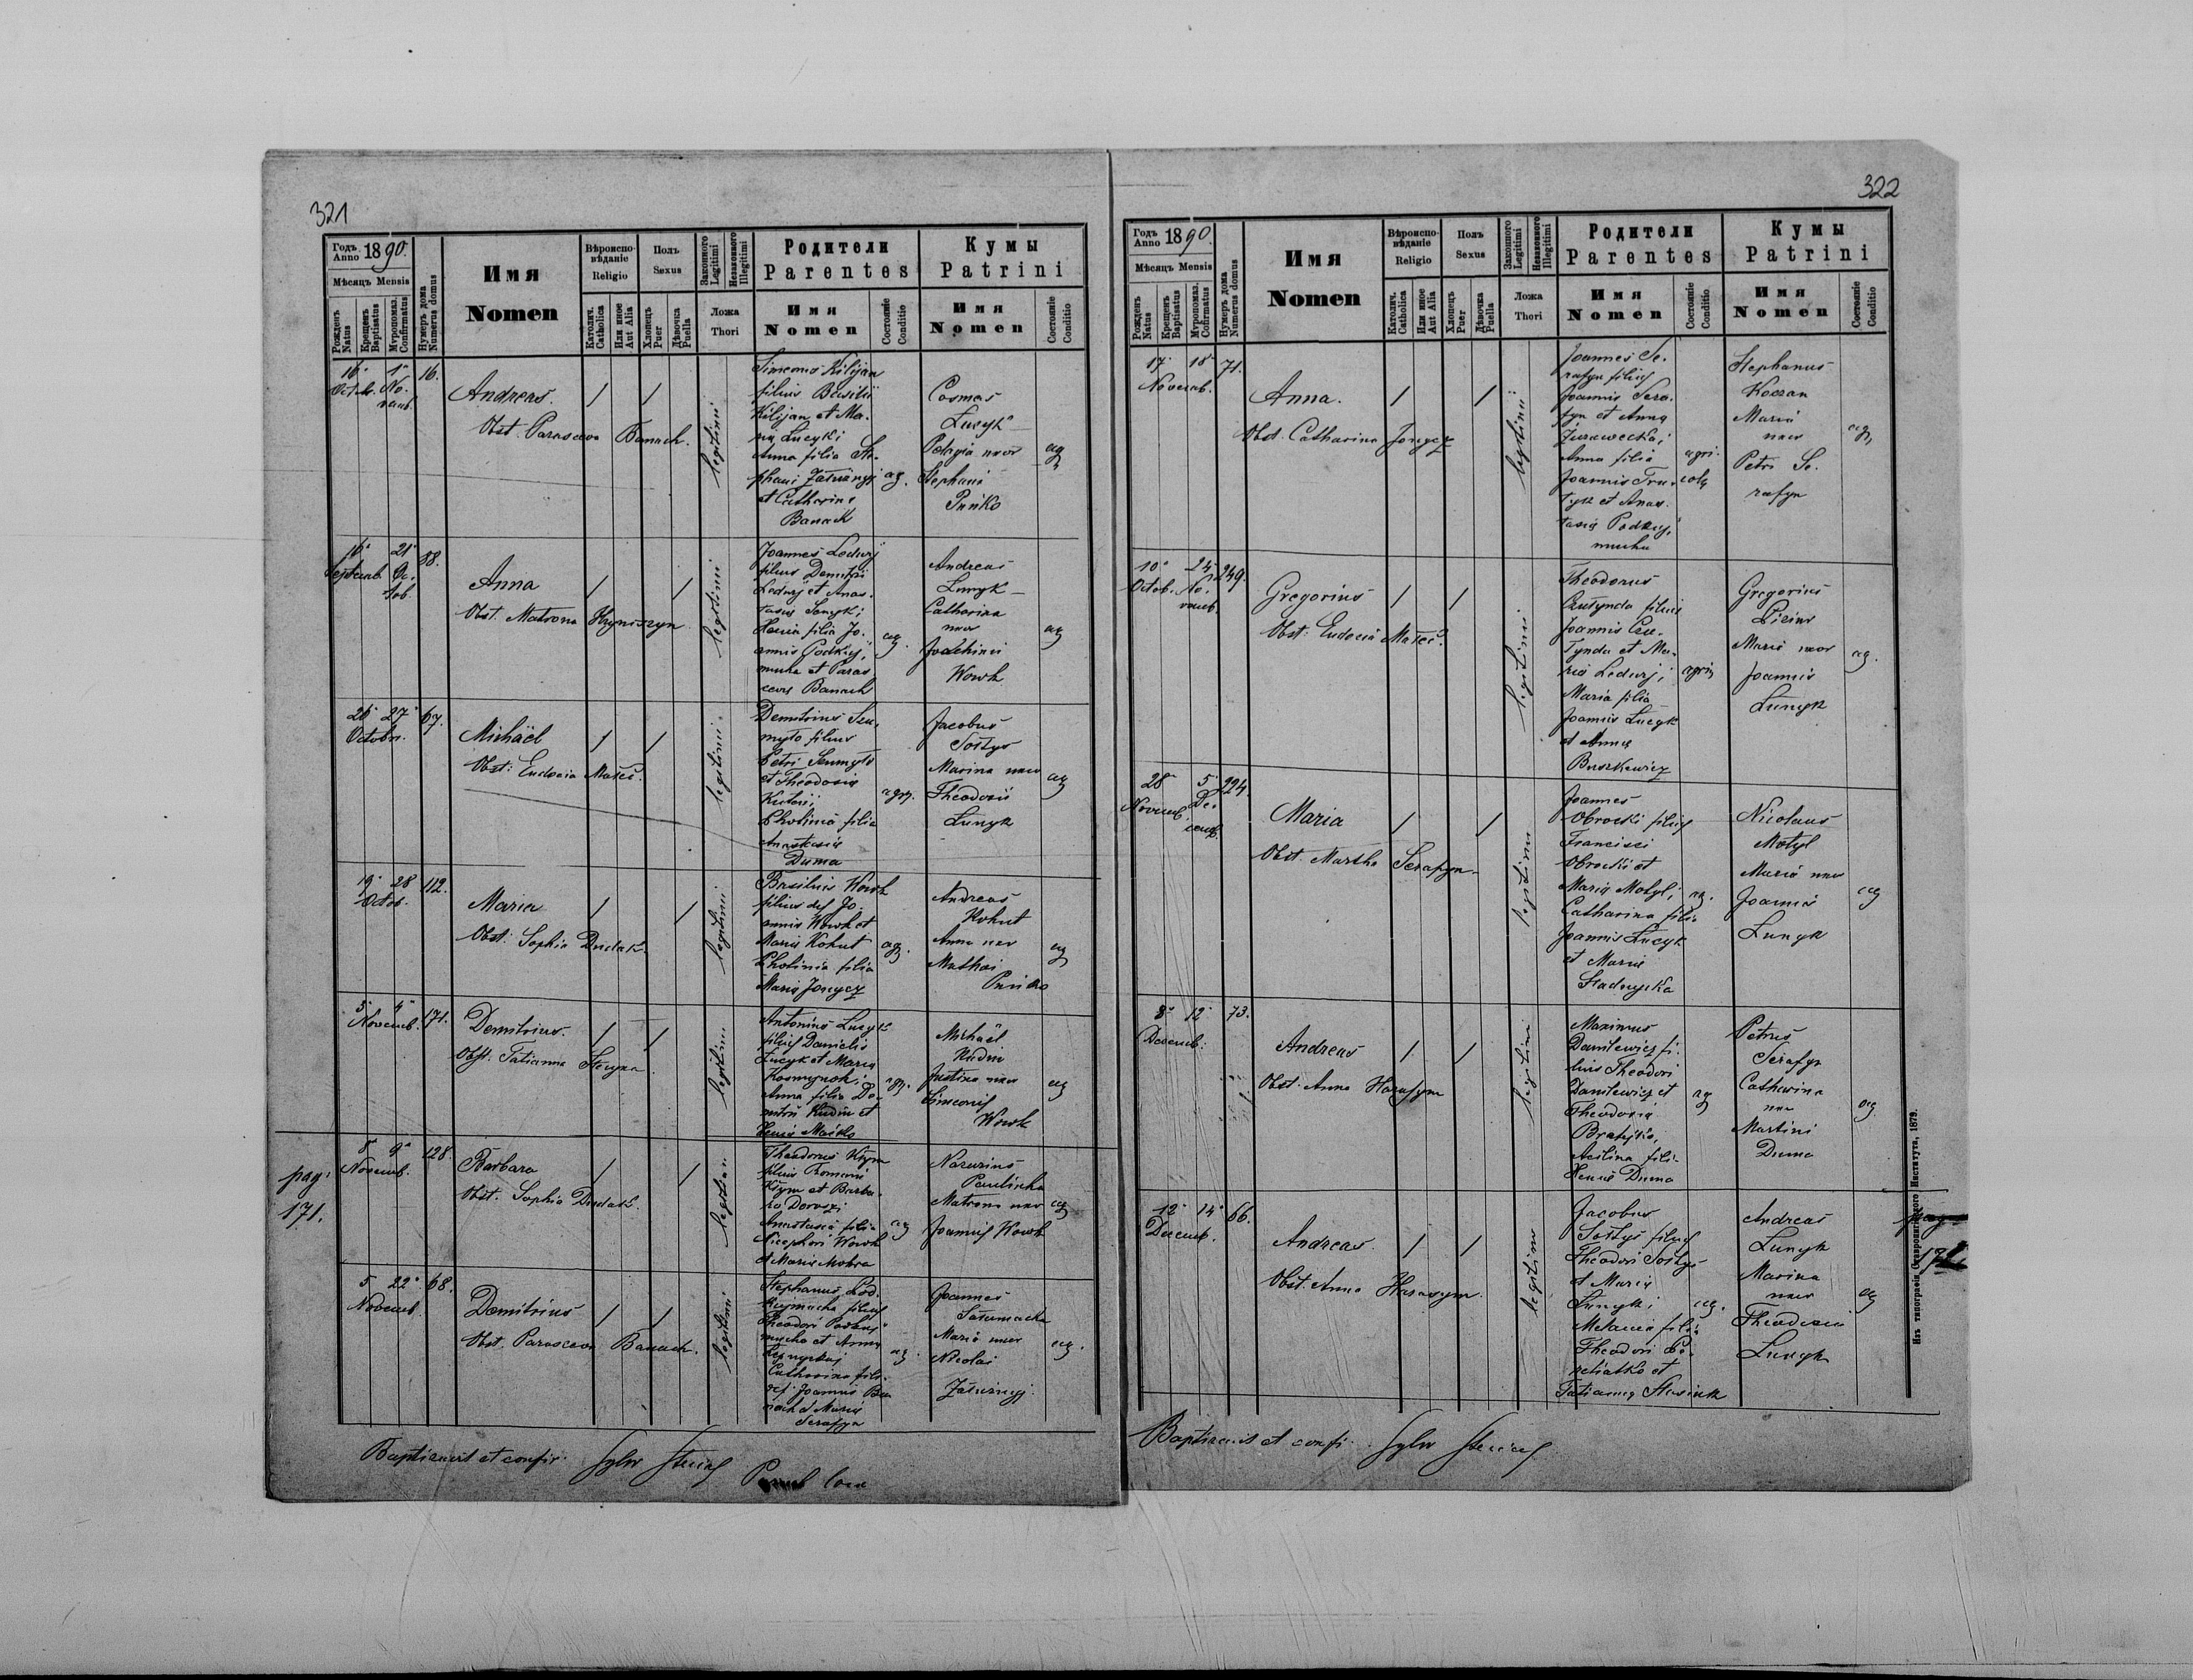 321
Годъ Anno 1890.
Мѣсяцъ Mensis
Рожденъ Natus
Крещенъ Baptisatus
Мѵропомаз. Confirmatus
Нумеръ дома Numerus domus
Имя
Nomen
Вѣроиспо-
вѣданіе
Religio
Католич. Catholica
Или иное Aut Alia
Полъ
Sexus
Хлопецъ Puer
Дѣвочка Puella
Законного Legitimi
Незаконного Illegitimi
Ложа
Thori
Родители
Parentes
Имя
Nomen
Состояніе Conditio
Кумы
Patrini
Имя
Nomen
Состояніе Conditio
16 1 16.
Octob. No-
vemb.
Andreas.
Obst. Parasceva Banach.
legitimi
Simeonis Kilijan
filius Basilii
Kilijan et Ma-
ria Lucyk;
Anna filia Ste-
phani Załużnyj
et Catharina
Banach
ag.
Cosmas
Lucyk
Pelagia uxor
Stephani
Puńko
ag
16 21 88.
Septemb. Oc-
tob.
Anna
Obst. Matrona Hryniszyn
legitimi
Joannes Ledwij
filius Demitri
Ledwij et Anas-
tasia
Xenia filia Jo-
annis Podkuj-
mucha et Paras
ceva Banach
ag.
Andreas
Łunyk
Catharina
uxor
Joachimi
Wowk
ag
26 27 67.
Octobr.
Michaël
Obst: Eudocia Małeć.
legitimi
Demitrius Szu-
myło filius
Petri Szumyło
et Theodosia
Photinia filia
Anastasia
Duma
agr.
Jacobus
Sołtys
Marina uxor
Theodosii
Łunyk
ag
19 28 112.
Octob.
Maria
Obst: Sophia Dudak.
legitimi
Basilius Wowk
filius def Jo-
annis Wowk et
Maria Kohut
Photinia filia
Maria Jonycz
ag.
Andreas
Kohut
Anna uxor
Mathaei
Puńko
ag
3 4 171.
Novemb.
Demitrius.
Obst. Tatianna
legitimi
Antonius Lucyk
filius Danielis
Lucyk et Maria
Anna filia De-
mitri Kudin et
Xenia
agr.
Michaël
Kudin
Justina uxor
Simeonis
Wowk
ag
pag:
171.
8 9 128.
Novemb.
Barbara
Obst. Sophia Dudak.
legitimi
Theodorus Kłym
filius Romani
Kłym et Barba-
ra
Anastasia filia
Nicephori Wowk
et Maria Mokra
ag
Nazarius
Pawlinka
Matrona uxor
Joannis Wowk
ag
5 22 68.
Novemb.
Demitrius
Obst. Parasceva Banach.
legitimi
Stephanus Pod-
kujmucha filius
Theodori Podkuj-
mucha et Anna
Catharina filia
def. Joannis Ba-
nach et Maria
Serafyn
ag.
Joannes
Maria uxor
Nicolai
Załużnyj
ag.
Baptizavit et confir.
322
Годъ Anno 1890.
Мѣсяцъ Mensis
Рожденъ Natus
Крещенъ Baptisatus
Мѵропомаз. Confirmatus
Нумеръ дома Numerus domus
Имя
Nomen
Вѣроиспо-
вѣданіе
Religio
Католич. Catholica
Или иное Aut Alia
Полъ
Sexus
Хлопецъ Puer
Дѣвочка Puella
Законного Legitimi
Незаконного Illegitimi
Ложа
Thori
Родители
Parentes
Имя
Nomen
Состояніе Conditio
Кумы
Patrini
Имя
Nomen
Состояніе Conditio
17 18 71.
Novemb.
Anna.
Obst. Catharina Jonycz
legitimi
Joannes Se-
rafyn filius
Joannis Sera-
fyn et Anna
Żurawecka;
Anna filia
Joannis Tru-
tyk et Anas-
tasia Podkuj-
mucha
agri-
colae
Stephanus
Koczan
Maria
uxor
Petri Se-
rafyn
ag.
10 24 249.
Octob. No-
vemb.
Gregorius
Obst: Eudocia Małeć.
legitimi
Theodorus
Czułynda filius
Joannis Czu-
łynda et Ma-
ria Ledwij;
Maria filia
Joannis Lucyk
et Anna
Buszkewicz
agri
Gregorius
Maria uxor
Joannis
Łunyk
ag.
28 5 224.
Novemb. De-
cemb.
Maria
Obst. Martha Serafyn
legitimi
Joannes
Obrocki filius
Francisci
Obrocki et
Maria Motyl;
Catharina filia
Joannis Lucyk
et Maria
Hadnyska
ag.
Nicolaus
Motyl
Maria uxor
Joannis
Łunyk
ag
8 12 73.
Decemb:
Andreas
Obst. Anna Harasym
legitimi
Maximus
Daniłewicz fi-
lius Theodori
Daniłewicz et
Theodosia
Acilina filia
Xenia Duma
ag
Petrus
Serafyn
Catharina
uxor
Martini
Duma
ag
12 14 66.
Decemb.
Andreas.
Obst. Anna Harasym.
legitimi
Jacobus
Sołtys filius
Theodori Sołtys
et Maria
Łunyk;
Melania filia
Theodori Pe-
rehiatko et
Tatianna
ag.
Andreas
Łunyk
Marina
uxor
Theodosii
Łunyk
ag
pag.
Изъ типографіи Ставропигійского Института, 1879.
Baptizavit et confir.